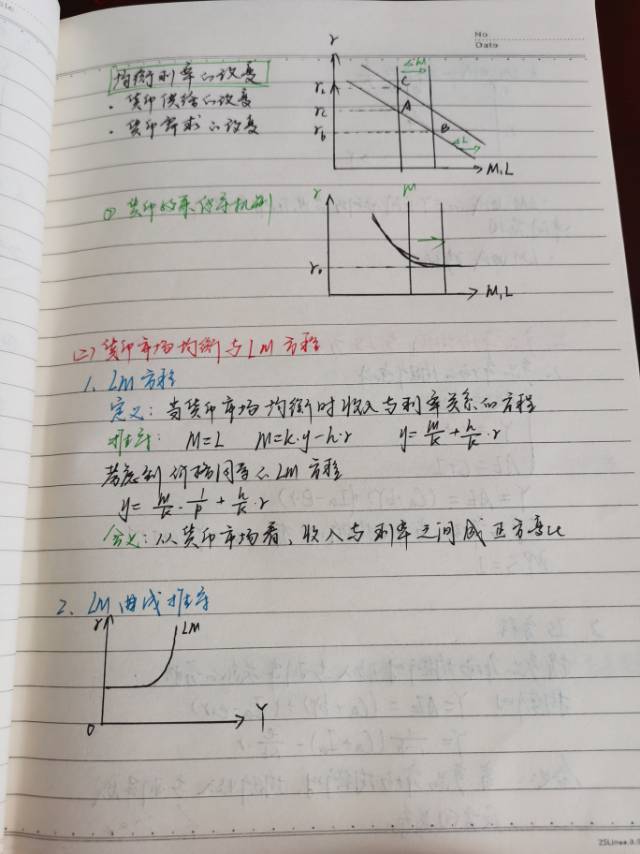 No
Date
均衡利率的改变
· 货币供给的改变
· 货币需求的改变
r
ΔM
C
A
B
ΔL
M,L
① 货币政策传导机制
r
M
r₀
M,L
(二) 货币市场均衡与LM方程
1、LM方程
定义：当货币市场均衡时收入与利率关系的方程
推导： M=L M=k·y-h·r y=m/k+h/k·r
考虑到价格因素的LM方程
y=m/k·1/p+h/k·r
含义：从货币市场看，收入与利率之间成正方变化
2、LM曲线推导
r
LM
O
Y